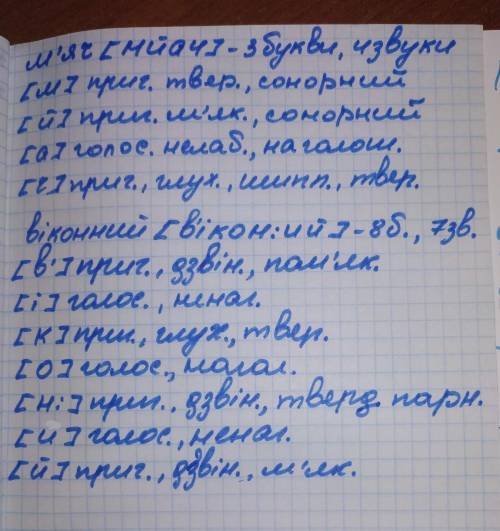 м'яч [мйач] - 3 букви, 4 звуки
[м] приг. твер., сонорний
[й] приг. м'як., сонорний
[а] голос. нелаб., наголош.
[ч] приг., глух., шипп., твер.
віконний [в'ікон:ий] - 8б., 7зв.
[в'] приг., дзвін., пом'як.
[і] голос., ненаг.
[к] приг., глух., твер.
[о] голос., нагол.
[н:] приг., дзвін., тверд. парн.
[и] голос., ненаг.
[й] приг., дзвін., м'як.